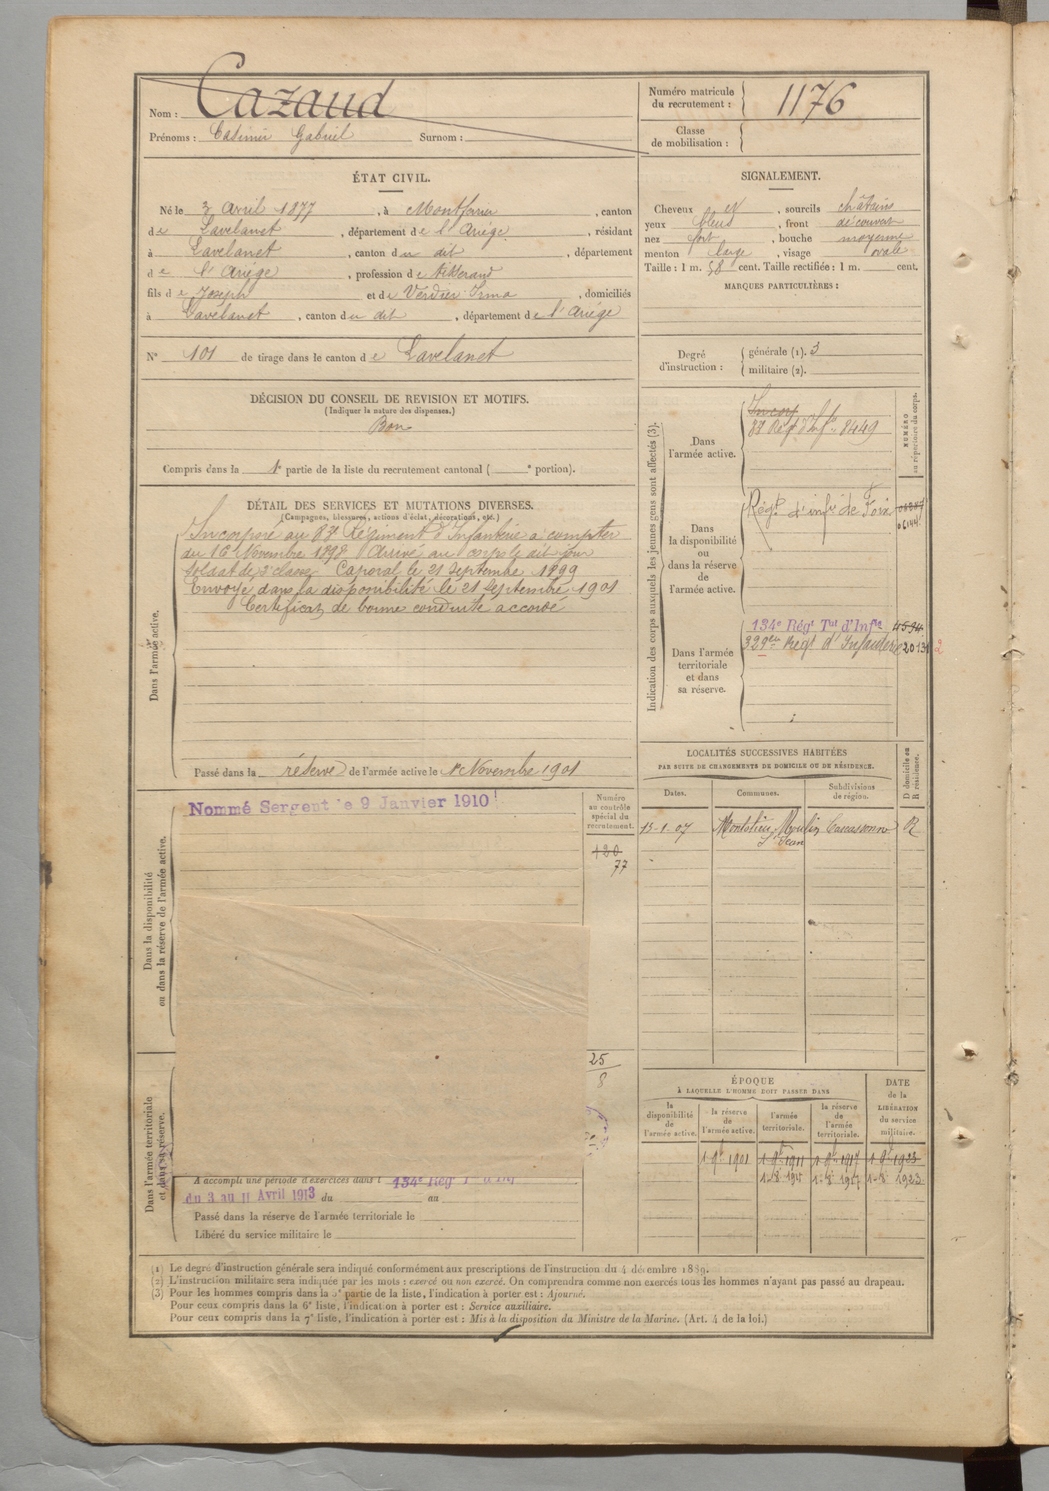 Nom : Cazaud
Prénoms : Casimir Gabriel Surnom :
Numéro matricule du recrutement : 1176
Classe de mobilisation :
ÉTAT CIVIL.
Né le 3 Avril 1877, à Montferrier, canton
de Lavelanet, département de l'Ariège, résidant
à Lavelanet, canton du dit, département
de l'Ariège, profession de tisserand
fils de Joseph et de Verdier Irma, domiciliés
à Lavelanet, canton du dit, département de l'Ariège
N° 101 de tirage dans le canton de Lavelanet
SIGNALEMENT.
Cheveux et, sourcils châtains
yeux bleus, front découvert
nez fort, bouche moyenne
menton large, visage ovale
Taille : 1 m. 58 cent. Taille rectifiée : 1 m. cent.
MARQUES PARTICULIÈRES :
Degré d'instruction : générale (1). 3
militaire (2).
DÉCISION DU CONSEIL DE REVISION ET MOTIFS.
(Indiquer la nature des dispenses.)
Bon
Compris dans la 1e partie de la liste du recrutement cantonal ( e portion).
DÉTAIL DES SERVICES ET MUTATIONS DIVERSES.
(Campagnes, blessures, actions d'éclat, décorations, etc.)
Dans l'armée active.
Incorporé au 83e Régiment d'Infanterie à compter
du 16 Novembre 1898 Arrivé au corps le dit jour
Soldat de 2e classe Caporal le 21 Septembre 1899
Envoyé dans la disponibilité le 21 Septembre 1901
Certificat de bonne conduite accordé
Passé dans la réserve de l'armée active le 1er Novembre 1901
Indication des corps auxquels les jeunes gens sont affectés (3).
NUMÉRO au répertoire du corps.
Dans l'armée active.
Incorp
83e Régt d'Infie 8449
Dans la disponibilité ou dans la réserve de l'armée active.
Régt d'infie de Foix
Dans l'armée territoriale et dans sa réserve.
134e Régt Tal d'Infie 4594
329em Régt d'Infanterie 20131
LOCALITÉS SUCCESSIVES HABITÉES
PAR SUITE DE CHANGEMENTS DE DOMICILE OU DE RÉSIDENCE.
Dates. Communes. Subdivisions de région. D domicile ou R résidence.
13-1-07 Montolieu, Moulin St Jean Carcassonne R
Dans la disponibilité ou dans la réserve de l'armée active.
Nommé Sergent le 9 Janvier 1910
Numéro au contrôle spécial du recrutement.
120
77
25
8
Dans l'armée territoriale et dans sa réserve.
A accompli une période d'exercices dans l 134e Rég
du 3 au 11 Avril 1913 du au
Passé dans la réserve de l'armée territoriale le
Libéré du service militaire le
ÉPOQUE
À LAQUELLE L'HOMME DOIT PASSER DANS
la disponibilité de l'armée active.
la réserve de l'armée active.
l'armée territoriale.
la réserve de l'armée territoriale.
DATE de la LIBÉRATION du service militaire.
1 9bre 1901 1 9bre 1911 1 9bre 1917 1 9bre 1923
(1) Le degré d'instruction générale sera indiqué conformément aux prescriptions de l'instruction du 4 décembre 1889.
(2) L'instruction militaire sera indiquée par les mots : exercé ou non exercé. On comprendra comme non exercés tous les hommes n'ayant pas passé au drapeau.
(3) Pour les hommes compris dans la 5e partie de la liste, l'indication à porter est : Ajourné.
Pour ceux compris dans la 6e liste, l'indication à porter est : Service auxiliaire.
Pour ceux compris dans la 7e liste, l'indication à porter est : Mis à la disposition du Ministre de la Marine. (Art. 4 de la loi.)